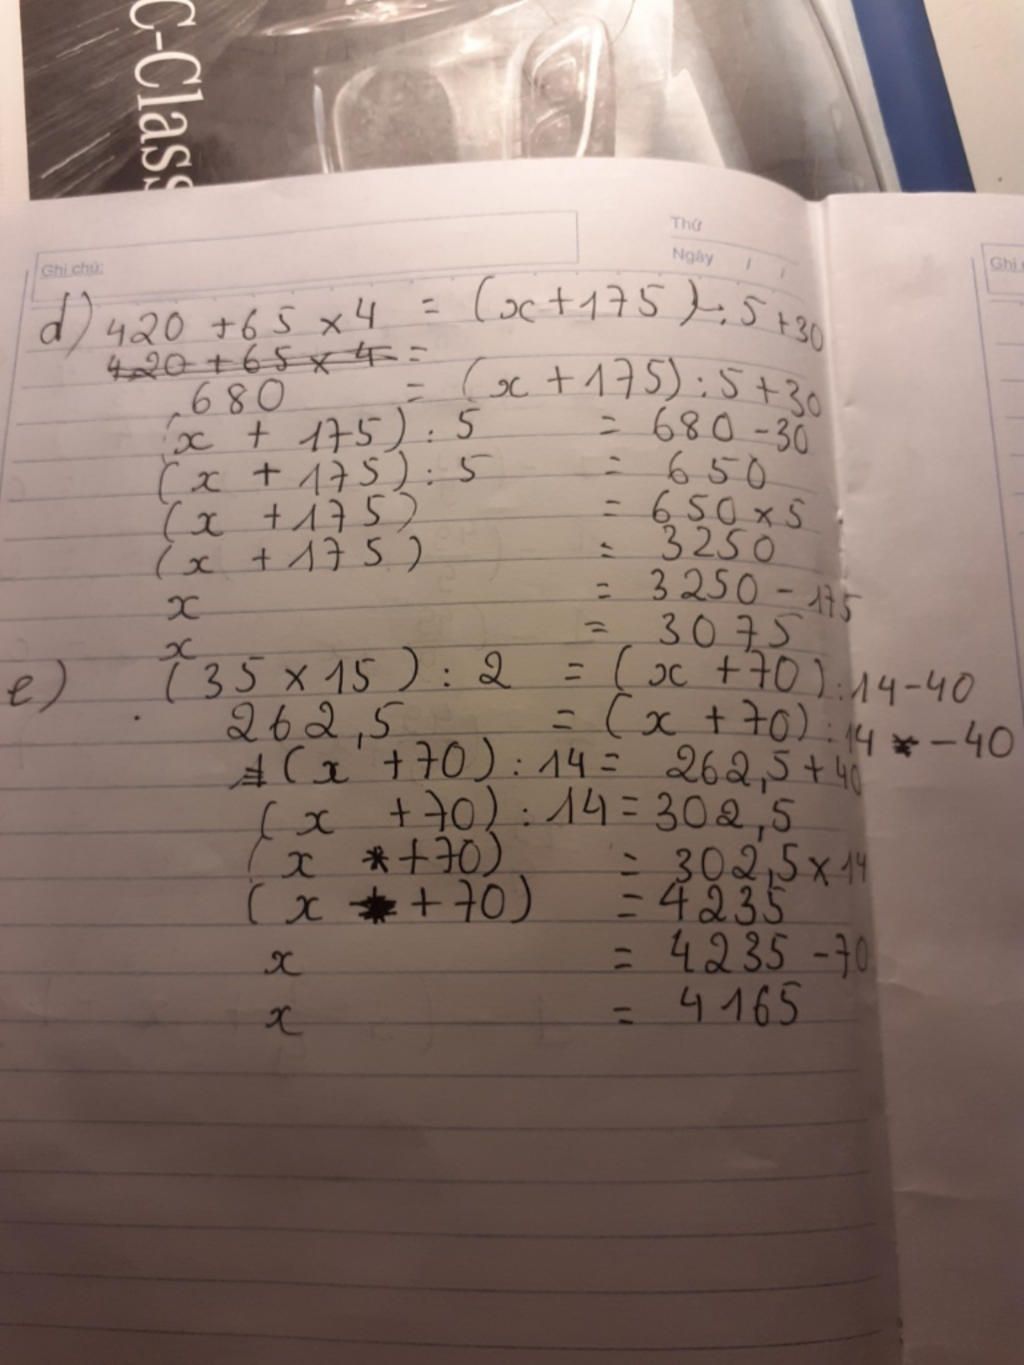 C-Class
Thứ
Ngày / /
Ghi chú:
Ghi
d) 420 + 65 x 4 = (x + 175) : 5 + 30
420 + 65 x 4 =
680 = (x + 175) : 5 + 30
x + 175) : 5 = 680 - 30
(x + 175) : 5 = 650
(x + 175) = 650 x 5
(x + 175) = 3250
x = 3250 - 175
x = 3075
e) (35 x 15) : 2 = (x + 70) : 14 - 40
262,5 = (x + 70) : 14 - 40
(x + 70) : 14 = 262,5 + 40
(x + 70) : 14 = 302,5
(x + 70) = 302,5 x 14
(x + 70) = 4235
x = 4235 - 70
x = 4165